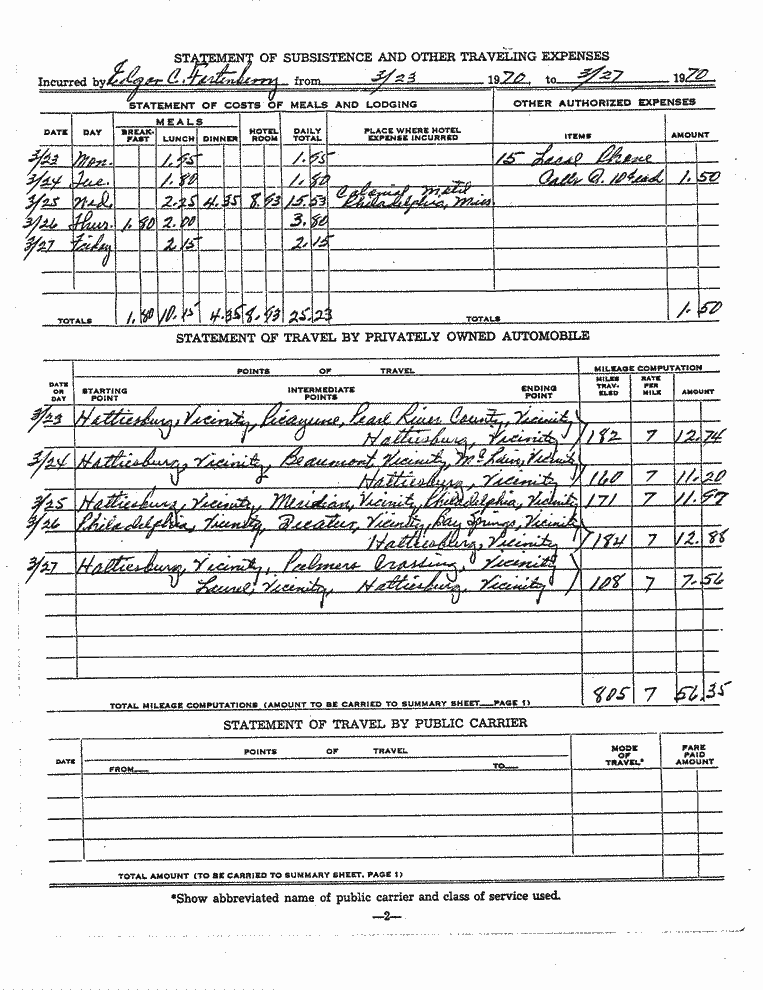 STATEMENT OF SUBSISTENCE AND OTHER TRAVELING EXPENSES
Incurred by Edgar C. Fortenberry from 3/23 1970, to 3/27 1970
STATEMENT OF COSTS OF MEALS AND LODGING OTHER AUTHORIZED EXPENSES
MEALS
DATE DAY BREAK-FAST LUNCH DINNER HOTEL ROOM DAILY TOTAL PLACE WHERE HOTEL EXPENSE INCURRED ITEMS AMOUNT
3/23 Mon. 1.95 1.95 15 Local Phone
3/24 Tue. 1.80 1.80 Calls @ 10¢ each 1.50
3/25 Wed. 2.25 4.35 8.93 15.53 Colonial Motel Philadelphia, Miss.
3/26 Thur. 1.80 2.00 3.80
3/27 Friday 2.15 2.15
TOTALS 1.80 10.15 4.35 8.93 25.23 TOTALS 1.50
STATEMENT OF TRAVEL BY PRIVATELY OWNED AUTOMOBILE
POINTS OF TRAVEL MILEAGE COMPUTATION
DATE OR DAY STARTING POINT INTERMEDIATE POINTS ENDING POINT MILES TRAV-ELED RATE PER MILE AMOUNT
3/23 Hattiesburg, Vicinity, Picayune, Pearl River County, Vicinity
Hattiesburg, Vicinity 182 7 12.74
3/24 Hattiesburg, Vicinity, Beaumont, Vicinity, McLain, Vicinity
Hattiesburg, Vicinity 160 7 11.20
3/25 Hattiesburg, Vicinity, Meridian, Vicinity, Philadelphia, Vicinity 171 7 11.97
3/26 Philadelphia, Vicinity, Decatur, Vicinity, Bay Springs, Vicinity
Hattiesburg, Vicinity 184 7 12.88
3/27 Hattiesburg, Vicinity, Palmers Crossing, Vicinity
Laurel, Vicinity, Hattiesburg, Vicinity 108 7 7.56
TOTAL MILEAGE COMPUTATIONS (AMOUNT TO BE CARRIED TO SUMMARY SHEET PAGE 1) 805 7 56.35
STATEMENT OF TRAVEL BY PUBLIC CARRIER
DATE POINTS OF TRAVEL MODE OF TRAVEL* FARE PAID AMOUNT
FROM TO
TOTAL AMOUNT (TO BE CARRIED TO SUMMARY SHEET, PAGE 1)
*Show abbreviated name of public carrier and class of service used.
—2—